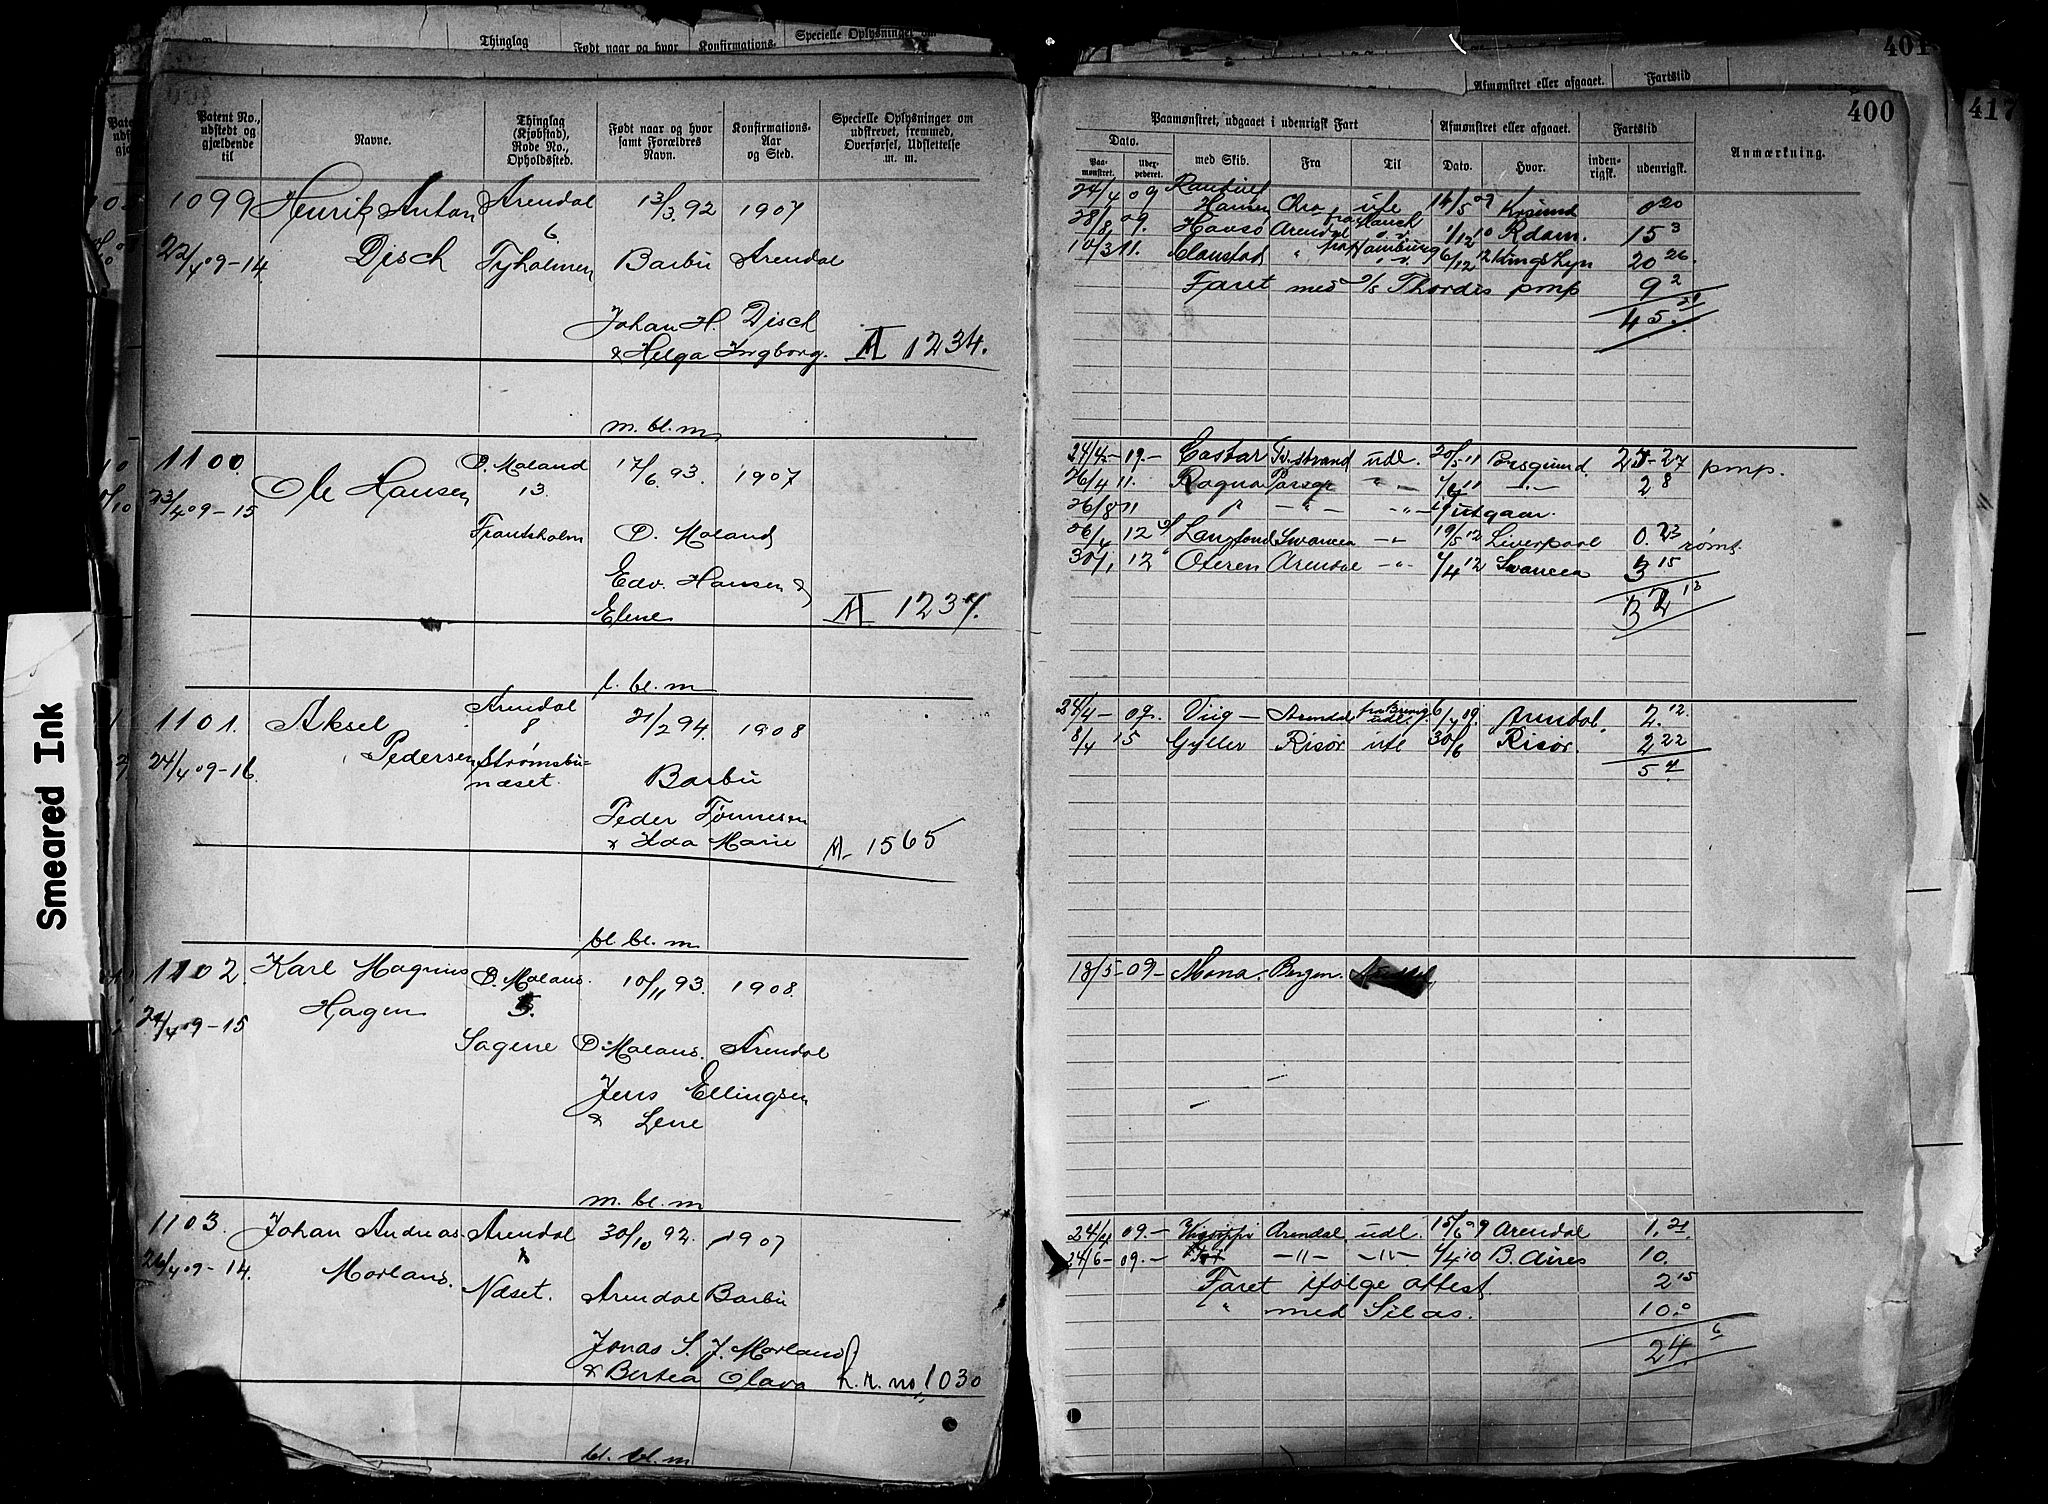 Thinglag
Født naar og hvor
Konfirmations-
Specielle Oplysninger om
401
Afmønstret eller afgaaet.
Fartstid
417
400
Patent No., udstedt og gjældende til
Navne.
Thinglag (Kjøbstad), Rode No., Opholdssted.
Født naar og hvor samt Forældres Navn.
Konfirmations-Aar og Sted.
Specielle Oplysninger om udskrevet, fremmed, Overførsel, Udslettelse m. m.
Paamønstret, udgaaet i udenrigsk Fart
Afmønstret eller afgaaet.
Fartstid
Anmærkning.
Dato.
Paa-mønstret.
med Skib.
Fra
Til
Dato.
Hvor.
inden-rigsk.
udenrigsk.
1099 Henrik Anton Arendal 13/3 92 1907
6.
22/4 09-14 Disch Tyholmen Barbu Arendal
Johan H. Disch
& Helga Ingborg. A 1234.
24/4 09 Hansen Chra ute 09 0 20
28/8 09. Havsø Arendal 1/12 10 Rdam. 15 3
10/3 11. Hamburg 12 Kings Lyn 20 26
Faret med s/s Thordis pmp 9 2
45. 21
m. bl. m
1100. Ole Hansen Ø. Moland 17/6 93. 1907
13.
23/4 09-15 Frantsholm Ø. Moland
Edv. Hansen &
Elene A 1237.
24/4-19- Castor Tv.strand udl. 20/5 11 Porsgrund 27 pmp.
26/4 11. Ragna Porsgr 2 8
26/8 11 utgaar.
12 Langfond Swansea 19/5 12 Liverpool 0. 23 rømt.
30/1 12 Oteren Arendal 4/4 12 Swansea 3 15
32 13
l. bl. m
1101. Aksel Arendal 21/2 94. 1908
8
24/4 09-16. Pedersen Strømsbu-
næset. Barbu
Peder Tønnesen
& Ida Marie A 1565
24/4-09. Viig Arendal udl. 09. Arendal. 2. 12
8/4 15 Gyller Risør utl 30/6 Risør. 2 22
5 4
bl. bl. m
1102. Karl Magnus Ø. Moland. 10/11 93. 1908.
Hagen 5.
24/4 09-15 Sagene Ø Moland. Arendal
Jens Ellingsen
& Lene
18/5-09- Mona Bergen.
m. bl. m
1103. Johan Andreas Arendal 30/10 92. 1907
26/4 09-14. Morland. Næset. Arendal Barbu
Jonas S. J. Morland
& Bertea Olava h. r. no, 1030
24/4 09.- Arendal udl. 15/6 09 Arendal 1. 21
24/6-09.- -"- -"- 4/4 10 B. Aires 10.
Faret ifølge attest. 2 15
" med Silas. 10. 0
24. 6
bl. bl. m
Smeared Ink